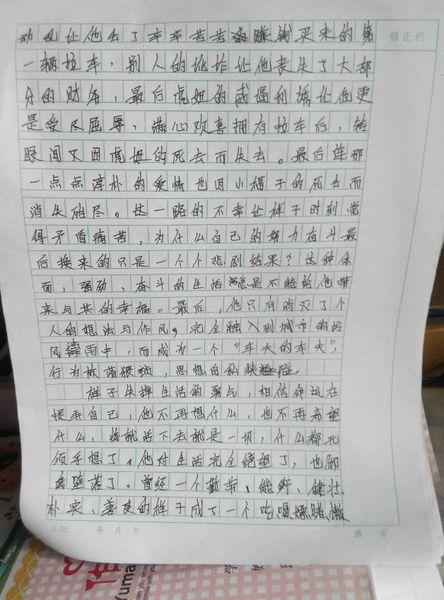 动乱让他丢了辛辛苦苦赚钱买来的第
修正栏
一辆拉车,别人的诋诈让他丧失了大部
分的财产,最后虎妞的威逼利诱让他更
是受尽屈辱,满心欢喜拥有拉车后,转
眼间又因虎妞的死去而失去。最后连那
一点点淳朴的爱情也因小福子的死去而
消失殆尽。这一路的不幸让祥子时刻觉
得矛盾痛苦,为什么自己的努力奋斗最
后换来的只是一个个悲剧结果?这种体
面,强劲,奋斗的生活总是不能给他带
来与其的幸福。最后,他只有消灭了个
人的想法与作风,完全融入到城市的
风雨中,而成为一个“车夫的车夫”,
行为堕落猥琐,思想自私
祥子失掉生活的勇气,相信命运在
捉弄自己,他不再想什么,也不再希望
什么,将就活下去就是一切,什么都无
须乎想了,他对生活完全绝望了,也彻
底堕落了。曾经一个勤劳、能干、健壮、
朴实、善良的祥子成了一个吃喝嫖赌、懒
年 月 日
第 页
(Yuma